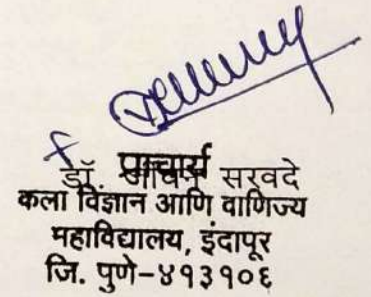 प्राचार्य
डॉ. जीवन सरवदे
कला विज्ञान आणि वाणिज्य
महाविद्यालय, इंदापूर
जि. पुणे-४१३१०६